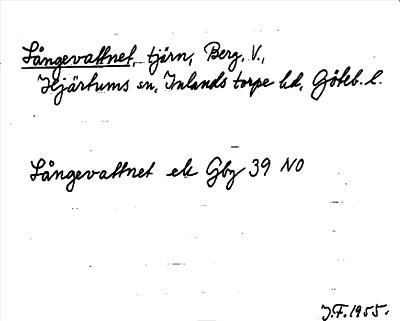 Långevattnet, tjärn, Berg, V.,
Hjärtums sn, Inlands torpe hd, Göteb. l.
Långevattnet ek Gbg 39 NO
J.F. 1955.